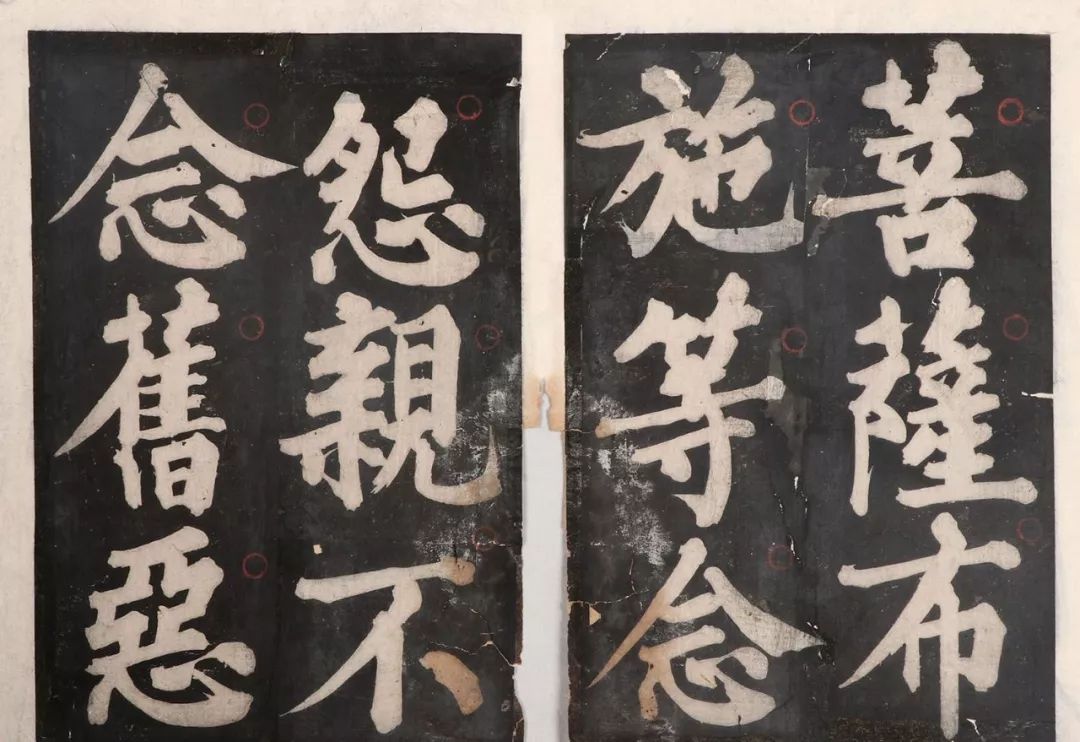 菩薩布
施等念
怨親不
念舊惡